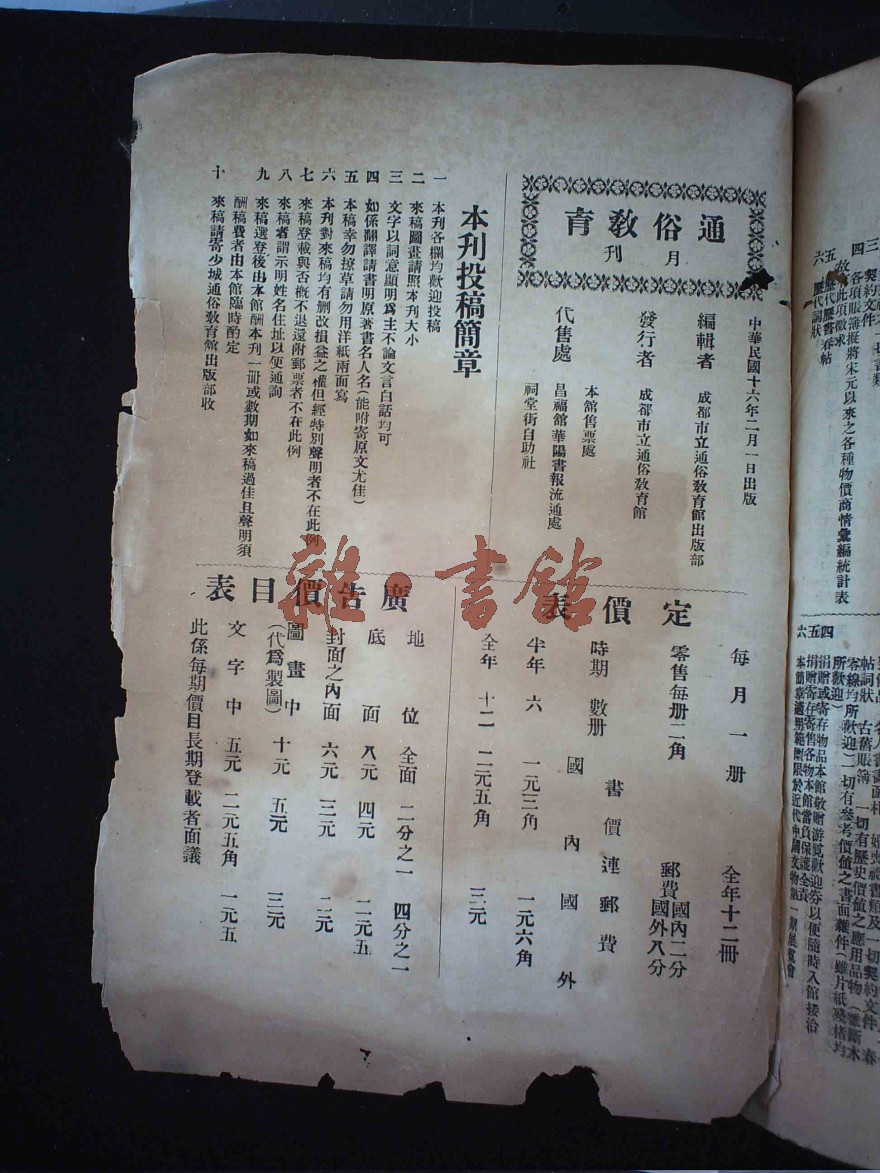 通俗教育
月刊
中華民國十六年二月一日出版
編輯者 成都市立通俗教育館出版部
發行者 成都市立通俗教育館
代售處
本館售票處
昌福館華陽書報流通處
祠堂街自助社
本刊投稿簡章
一 本刊各欄均歡迎投稿
二 來稿圖畫請照本刊大小
三 文字以詞意顯明爲主不論文言白話均可
四 如係翻譯請書明原著書名人名(能附寄原文尤佳)
五 本稿幸勿撩草請勿用洋紙兩面寫
六 本刊對來稿均有刪改損益之權但經特別聲明者不在此例
七 來稿登載與否概不退還附郵票者不在此例
八 來稿者請示明姓名名住址以便通詢
九 來稿選登後由本館酬本刊一冊或數期如來稿過佳且聲明須
酬稿費者由本館臨時酌定
十 來稿請寄少城通俗敎育館出版部收
定價表
每月一册 全年十二冊
零售每册二角 郵費國內二分
國外八分
時期 數册 書價連郵費
國內 國外
半年 六 一元三角 一元六角
全年 十二 二元五角 三元
廣告價目表
地位 全面 二分之一 四分之一
底面 八元 四元 二元五
封面之內面 六元 三元 二元
圖畫中 十元 五元 三元
(代爲製圖)
文字中 五元 二元五角 一元五
此係每期價目長期登載者面議
雜·書館
契約文件
四 各項賬簿擬將宋元以來之各種物價商情彙編統計表
故此項徵求
五 歷代歷書春帖
六 歷代詞狀
帖詞狀 古舊賬簿 一切有歷史價值之應用品物
所歡迎)
四 捐贈或寄存物品本館敬贈游覽歡迎券以便隨時入館接洽
五 捐贈寄存寄售各物本館當負保護全責